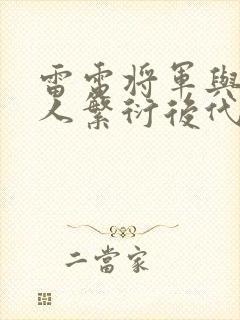 雷電將軍與
人繁衍後代
二當家